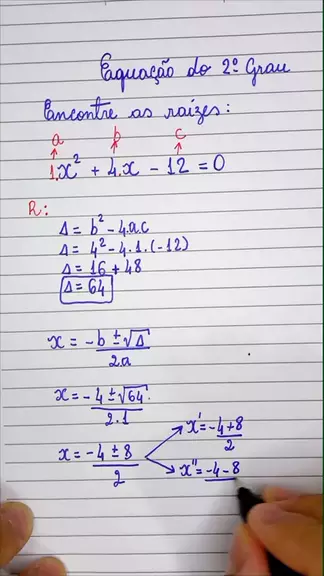 Equação do 2º Grau
Encontre as raízes:
a b c
1.x² + 4.x - 12 = 0
R:
Δ = b² - 4.a.c
Δ = 4² - 4.1.(-12)
Δ = 16 + 48
Δ = 64
x = -b ± √Δ / 2.a
x = -4 ± √64 / 2.1
x = -4 ± 8 / 2
x' = -4 + 8 / 2
x'' = -4 - 8